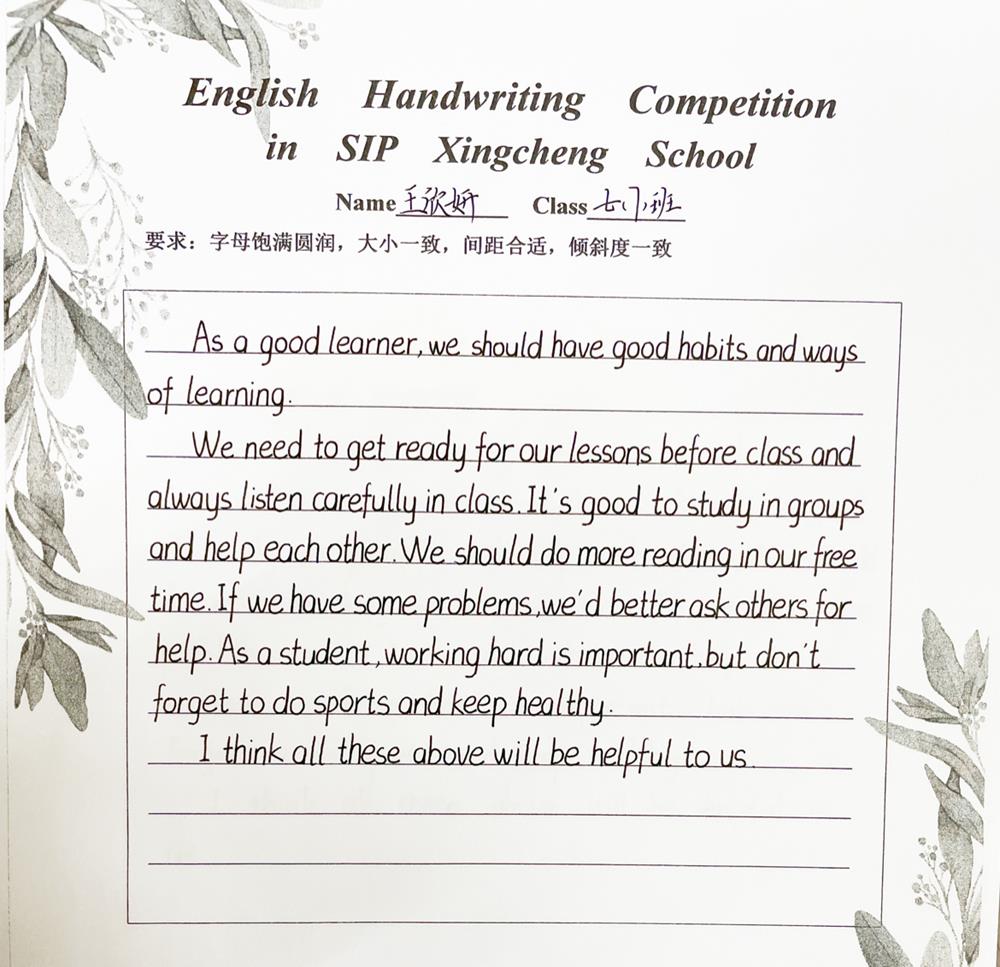 English Handwriting Competition
in SIP Xingcheng School
Name 王欣妍 Class 七(7)班
要求：字母饱满圆润，大小一致，间距合适，倾斜度一致
As a good learner, we should have good habits and ways
of learning.
We need to get ready for our lessons before class and
always listen carefully in class. It's good to study in groups
and help each other. We should do more reading in our free
time. If we have some problems, we'd better ask others for
help. As a student, working hard is important, but don't
forget to do sports and keep healthy.
I think all these above will be helpful to us.